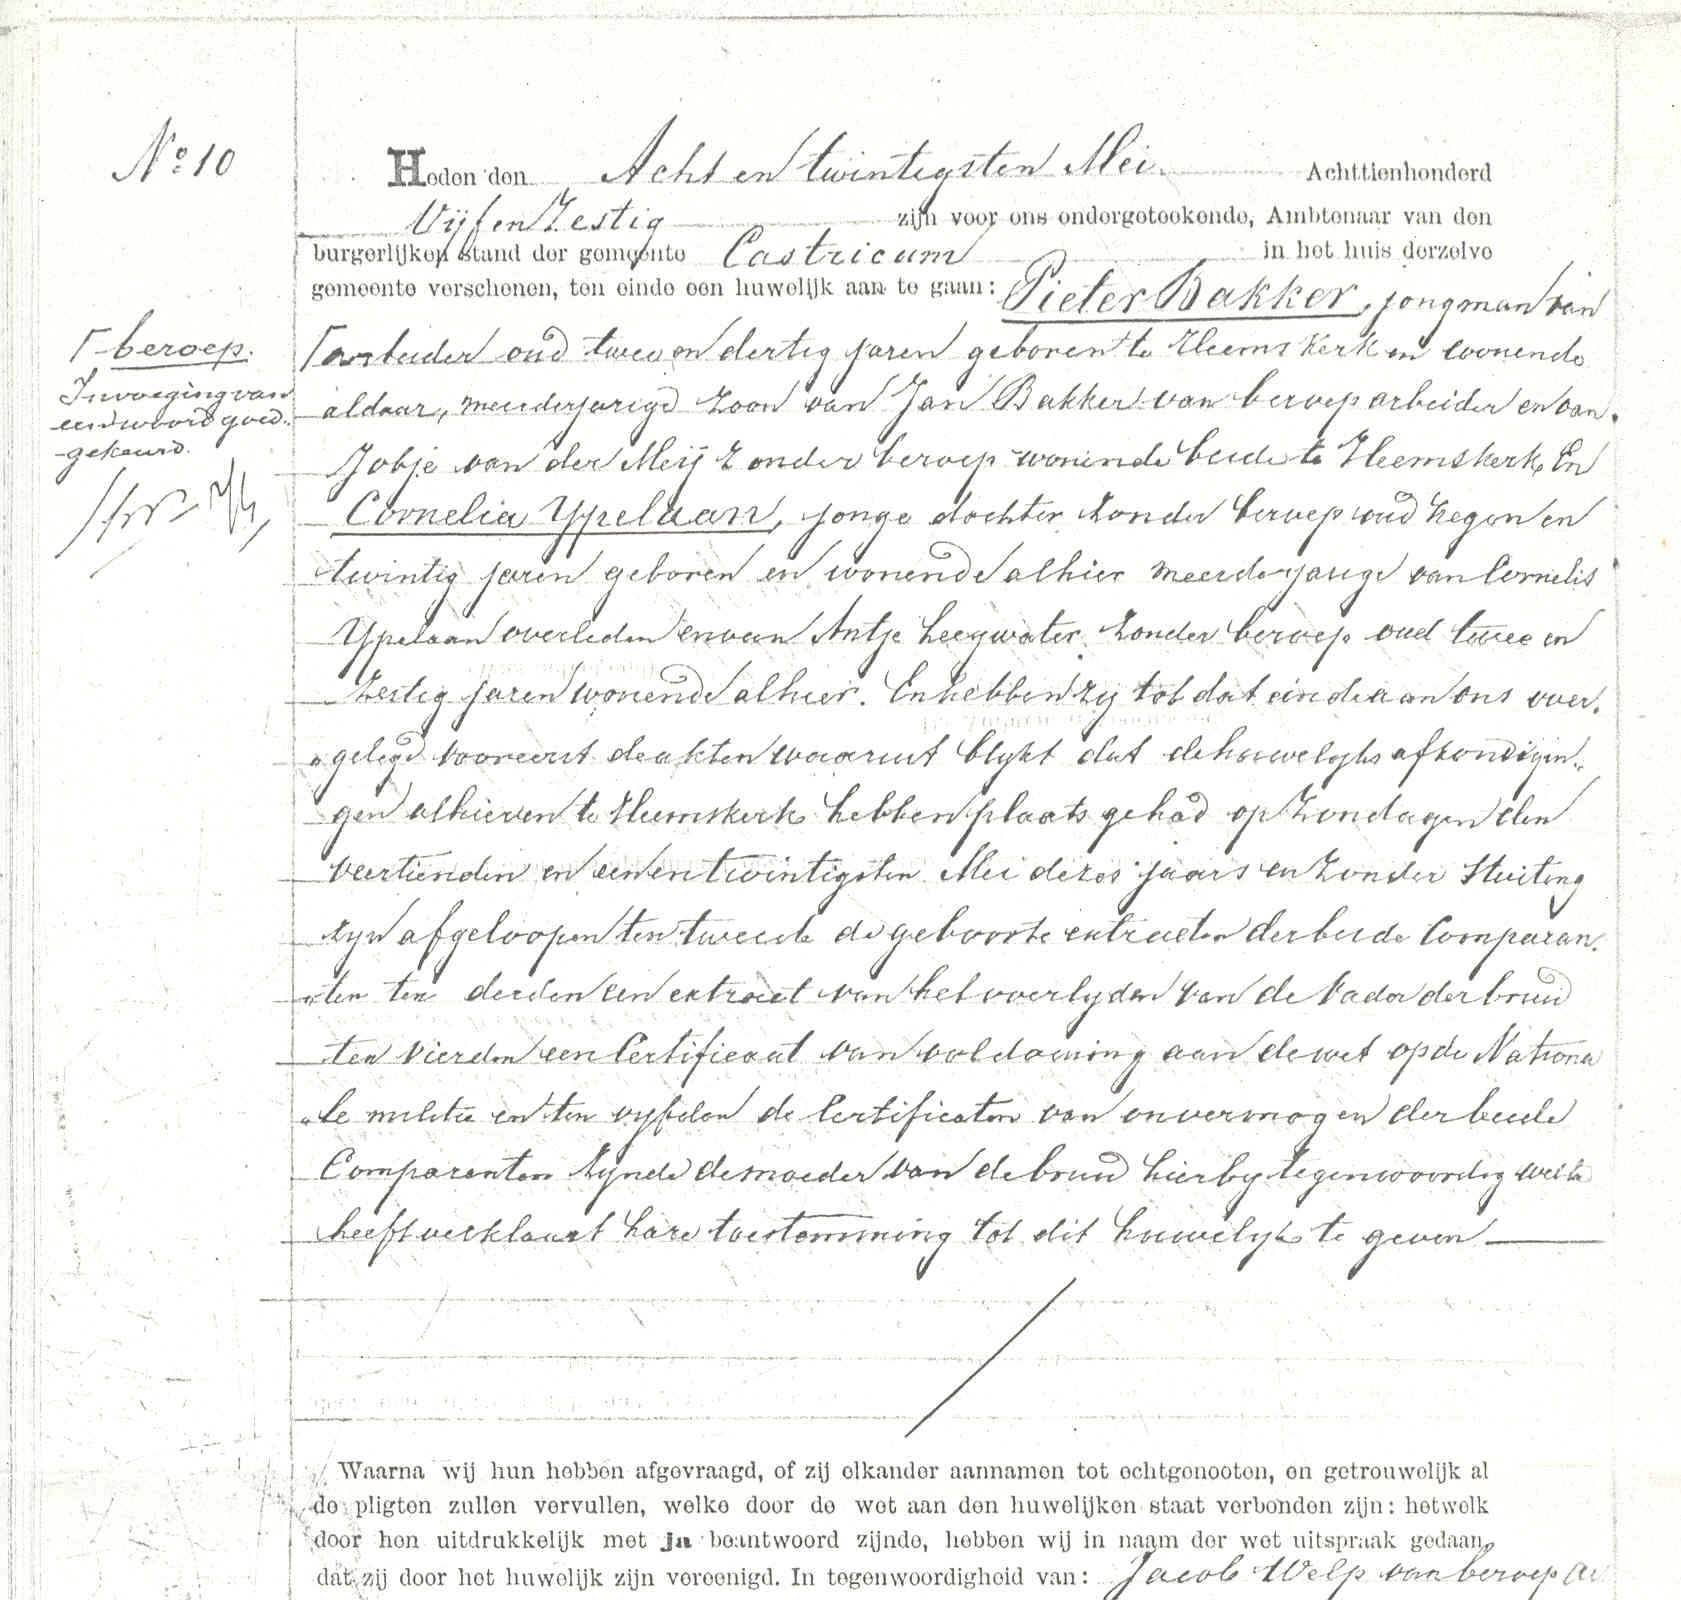 No 10
Heden den Acht en twintigsten Mei Achttienhonderd
Vijf en Zestig zijn voor ons ondergeteekende, Ambtenaar van den
burgerlijken stand der gemeente Castricum in het huis derzelve
gemeente verschenen, ten einde een huwelijk aan te gaan: Pieter Bakker, jongman van
beroep.
Invoeging van
een woord goed
gekeurd.
arbeider oud twee en dertig jaren geboren te Heemskerk en wonende
aldaar, meerderjarige zoon van Jan Bakker van beroep arbeider en van
Jobje van der Meij zonder beroep wonende beide te Heemskerk En
Cornelia Ypelaan, jonge dochter zonder beroep oud negen en
twintig jaren geboren en wonende alhier meerderjarige van Cornelis
Ypelaan overleden en van Antje Leegwater zonder beroep oud twee en
zestig jaren wonende alhier. En hebben zy tot dat einde aan ons over„
„gelegd vooreerst de akten waaruit blykt dat de huwelyks afkondigin„
gen alhier en te Heemskerk hebben plaats gehad op Zondagen den
veertienden en een en twintigsten Mei dezes jaars en zonder stuiting
zyn afgeloopen ten tweede de geboorte extracten der beide Comparan„
„ten ten derden een extract van het overlyden van de vader der bruid
ten vierden een Certificaat van voldoening aan de wet op de Nationa
„le militie en ten vyfden de Certificaten van onvermogen der beide
Comparanten zynde de moeder van de bruid hierby tegenwoordig welke
heeft verklaart hare toestemming tot dit huwelyk te geven
Waarna wij hun hebben afgevraagd, of zij elkander aannamen tot echtgenooten, en getrouwelijk al
de pligten zullen vervullen, welke door de wet aan den huwelijken staat verbonden zijn: hetwelk
door hen uitdrukkelijk met ja beantwoord zijnde, hebben wij in naam der wet uitspraak gedaan,
dat zij door het huwelijk zijn vereenigd. In tegenwoordigheid van: Jacob Welp van beroep Ar